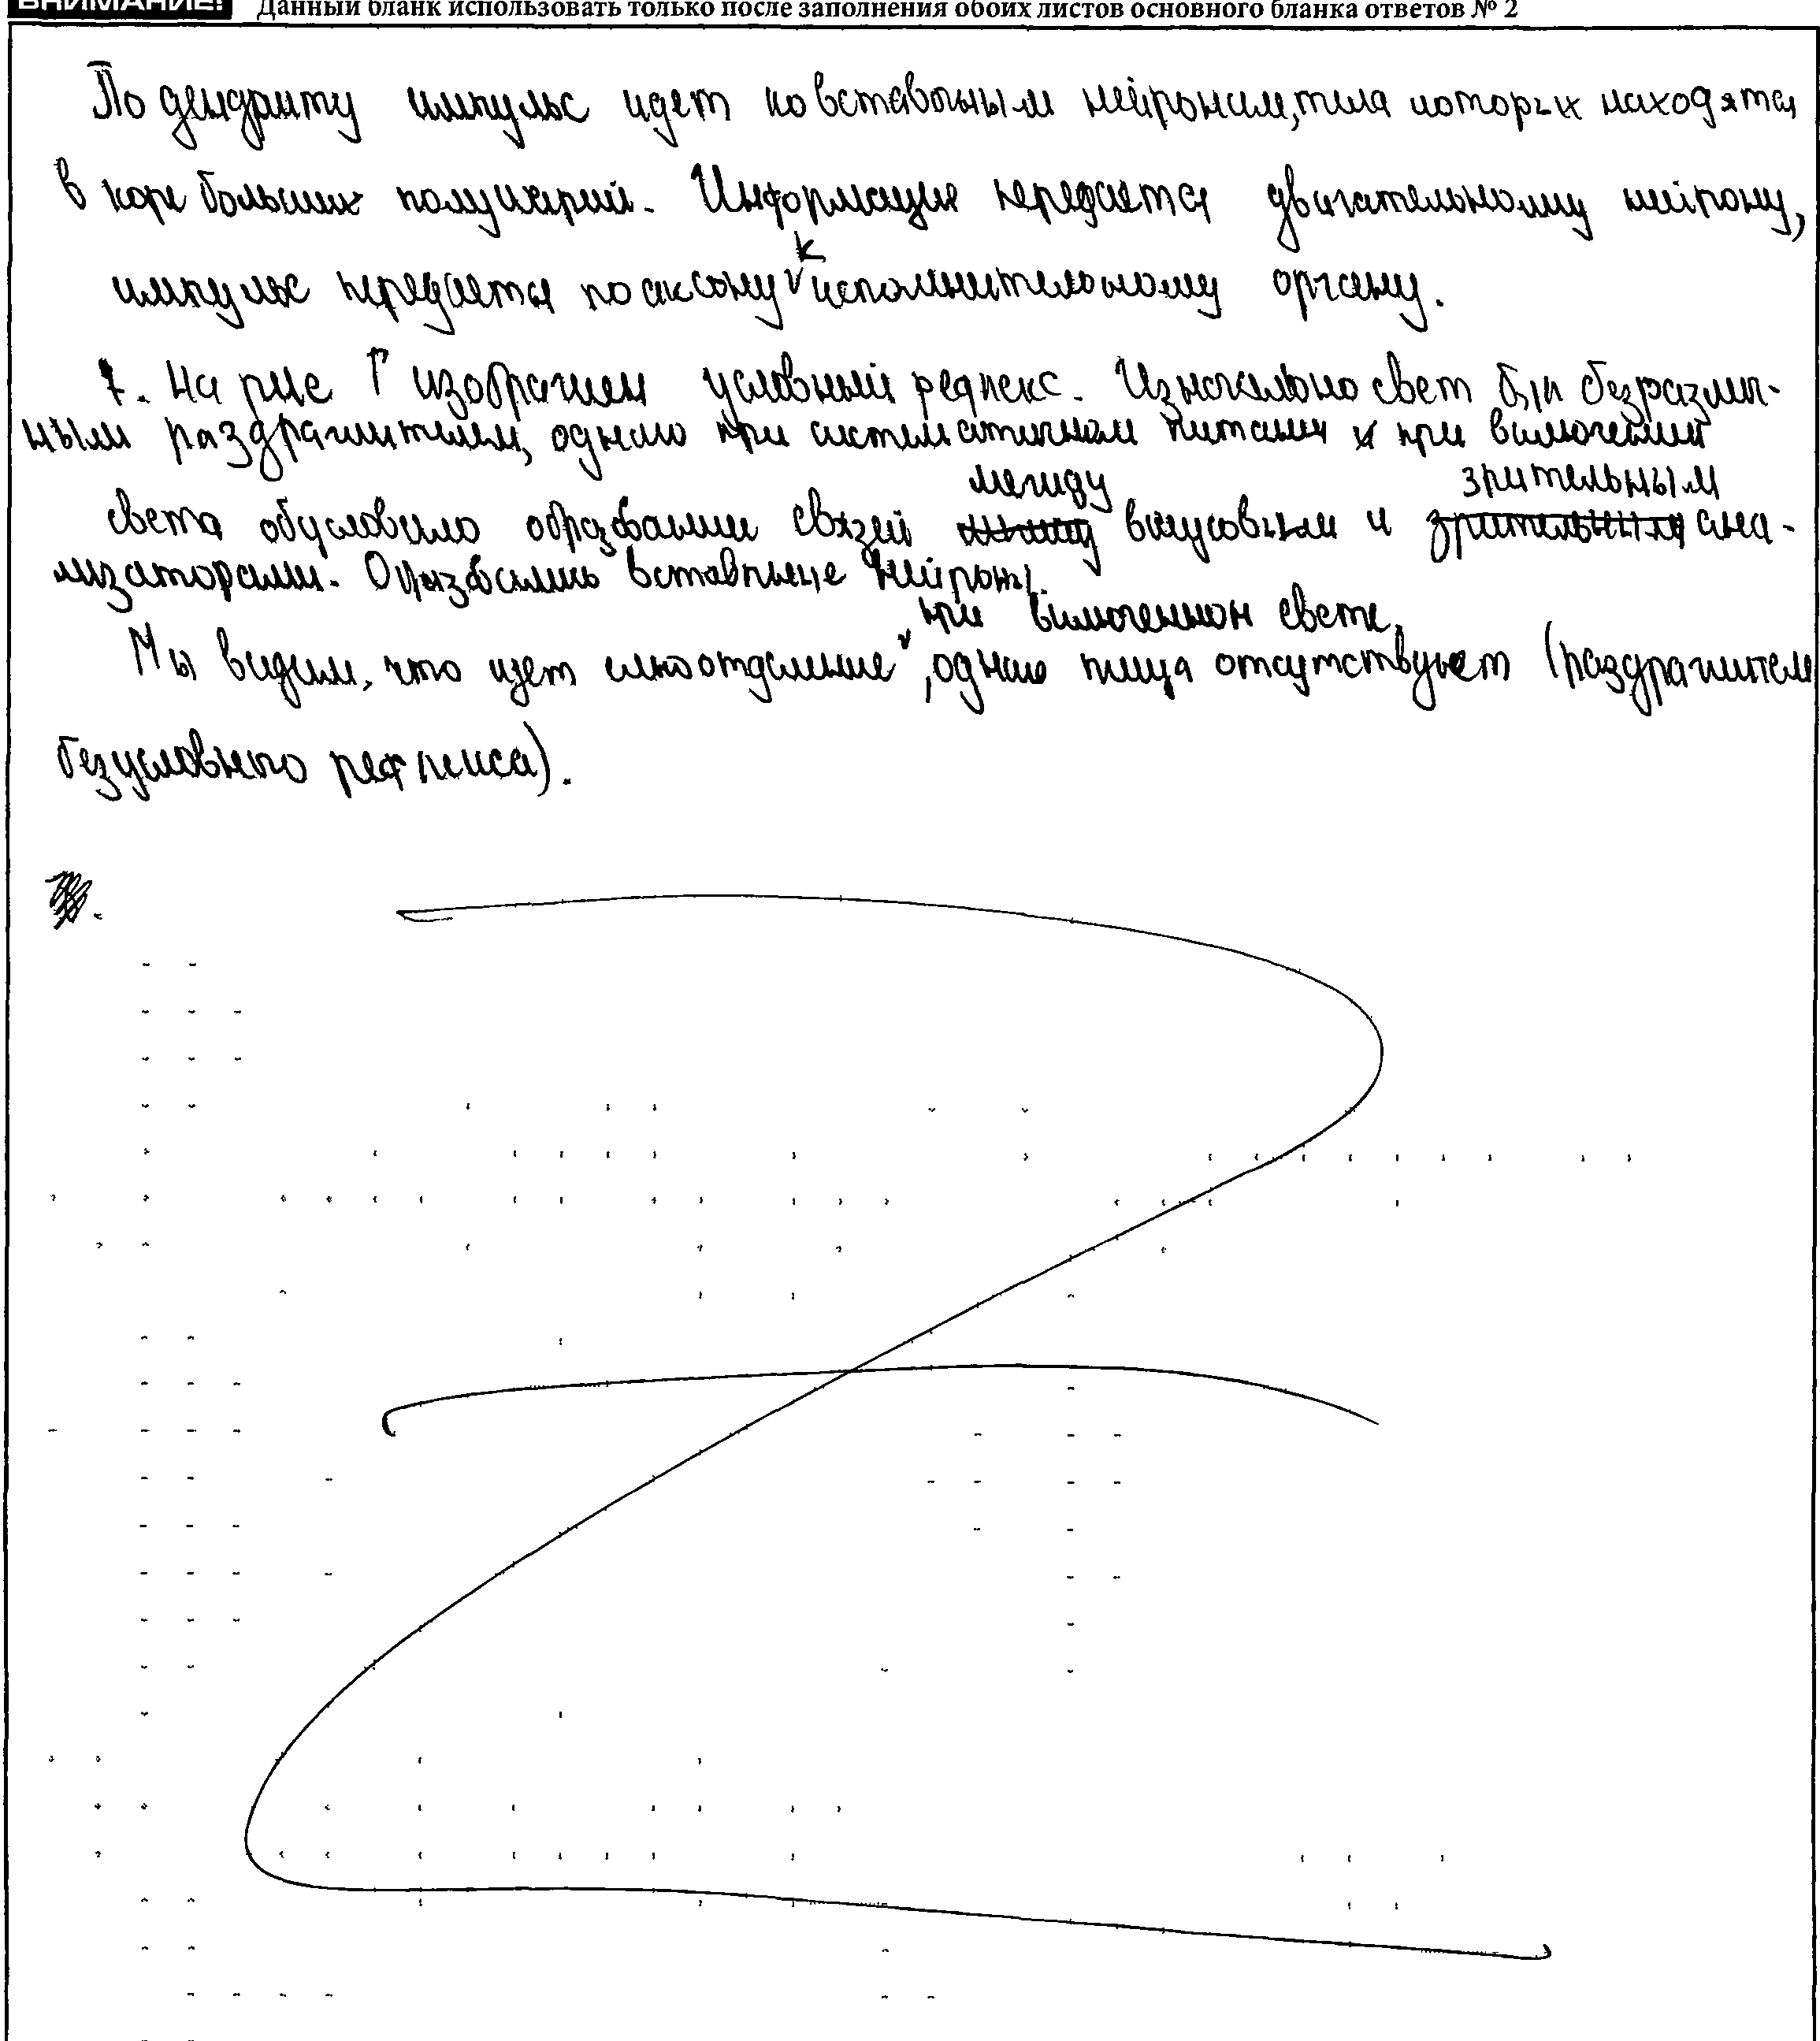 ВНИМАНИЕ! Данный бланк использовать только после заполнения обоих листов основного бланка ответов № 2
По дендриту импульс идет ко вставочным нейронам, тела которых находятся
в коре больших полушарий. Информация передается двигательному нейрону,
импульс передается по аксону к исполнительному органу.
7. На рис Г изображен условный рефлекс. Изначально свет был безразлич-
ным раздражителем, однако при систематичном питании и при включении
света обусловило образование связей между вкусовым и зрительным ана-
лизаторами. Образовались вставочные нейроны.
Мы видим, что идет слюноотделение при включенном свете, однако пища отсутствует (раздражитель
безусловного рефлекса).